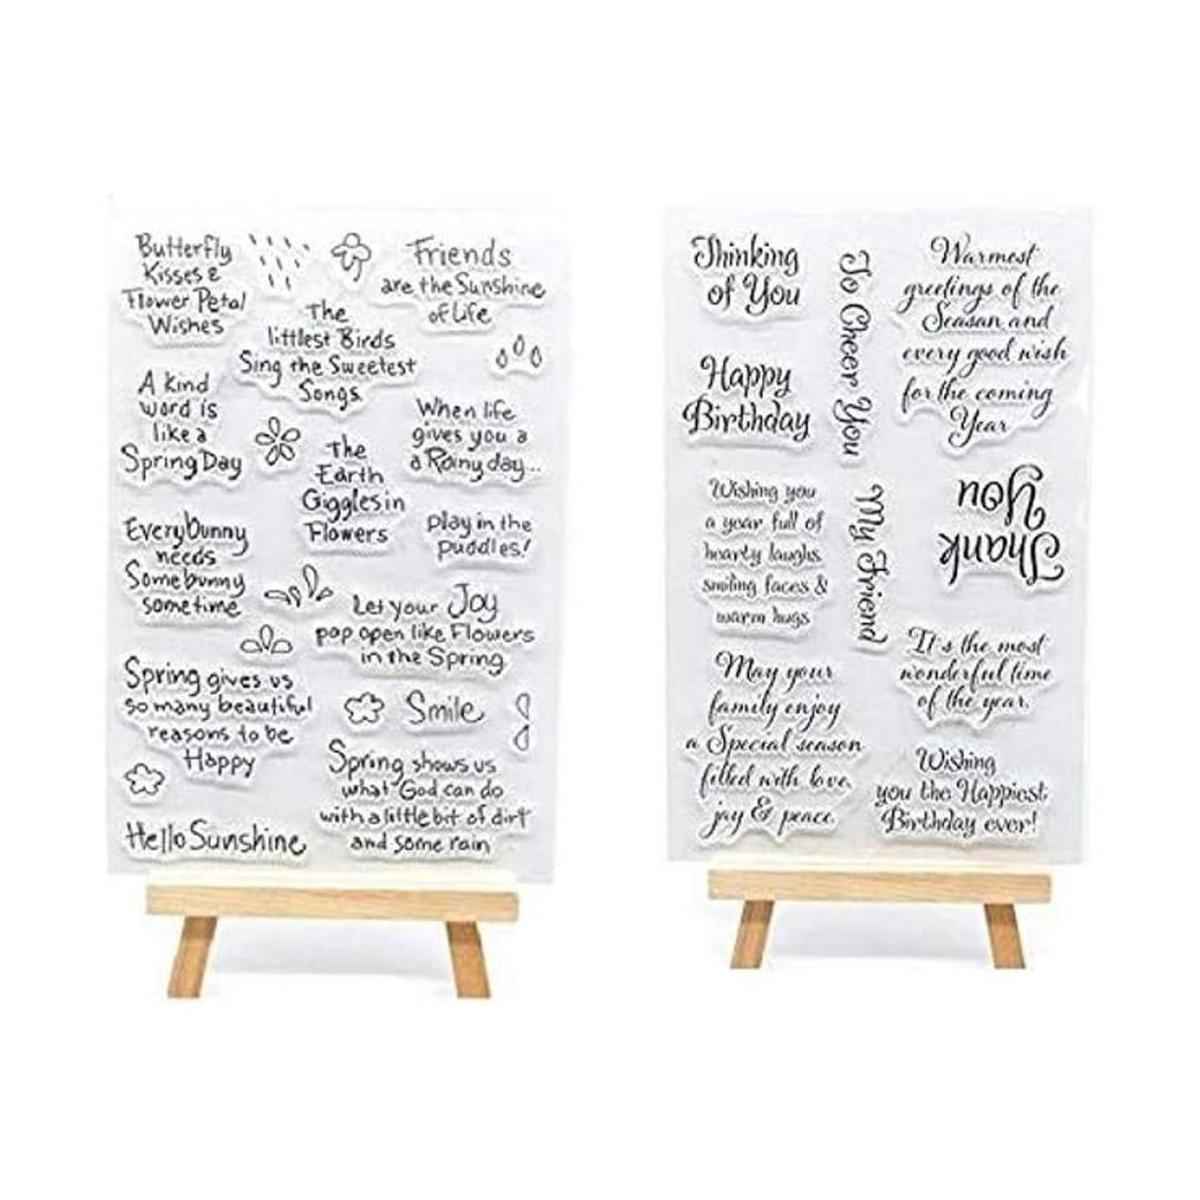 Butterfly
Kisses &
Flower Petal
Wishes
Friends
are the Sunshine
of Life
The
littlest Birds
Sing the Sweetest
Songs
A kind
word is
like a
Spring Day
When life
gives you a
a Rainy day...
The
Earth
Giggles in
Flowers
play in the
puddles!
Everybunny
needs
Somebunny
sometime
Let your Joy
pop open like Flowers
in the Spring
Spring gives us
so many beautiful
reasons to be
Happy
Smile
Spring shows us
what God can do
with a little bit of dirt
and some rain
Hello Sunshine
Thinking
of You
To Cheer You
Warmest
greetings of the
Seasan and
every good wish
for the coming
Year
Happy
Birthday
Wishing you
a year full of
hearty laughs
smiling faces &
warm hugs
My Friend
Thank
You
It's the most
wonderful time
of the year.
May your
family enjoy
a Special season
filled with love,
joy & peace
Wishing
you the Happiest
Birthday ever!